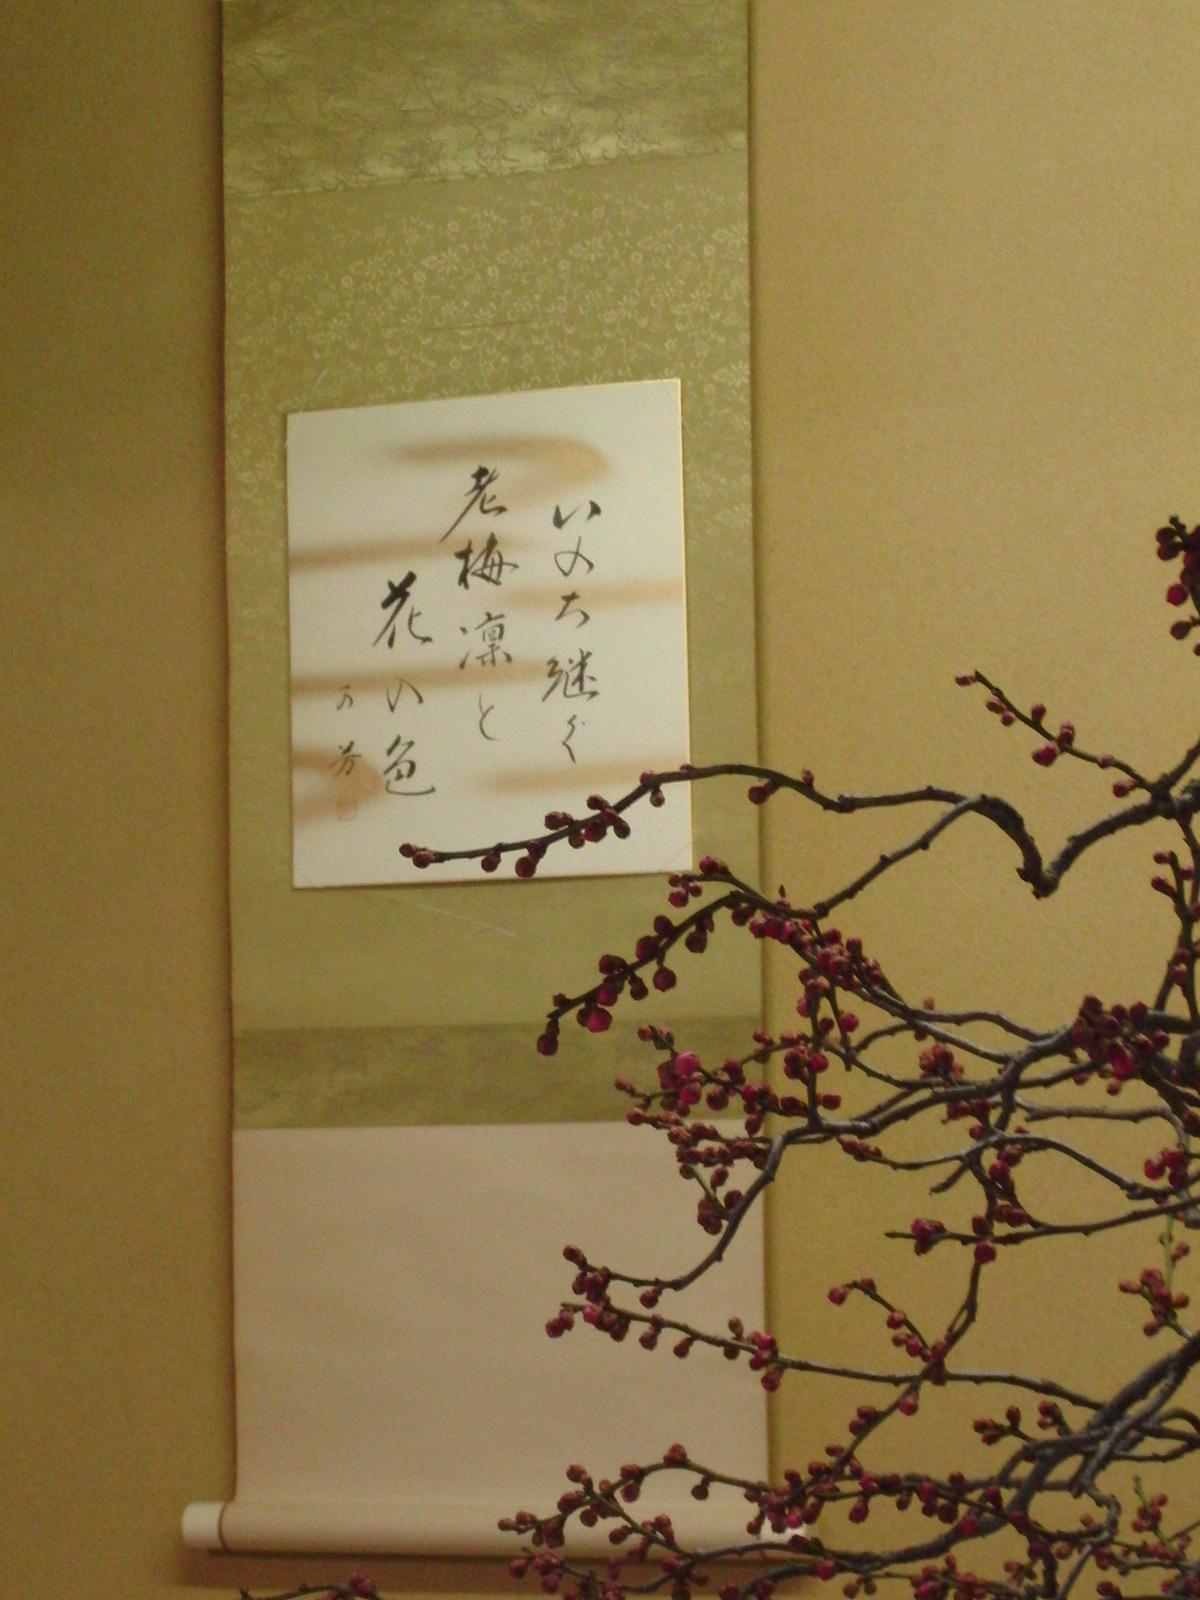 いのち継ぐ
老梅凛と
花の色
万芳